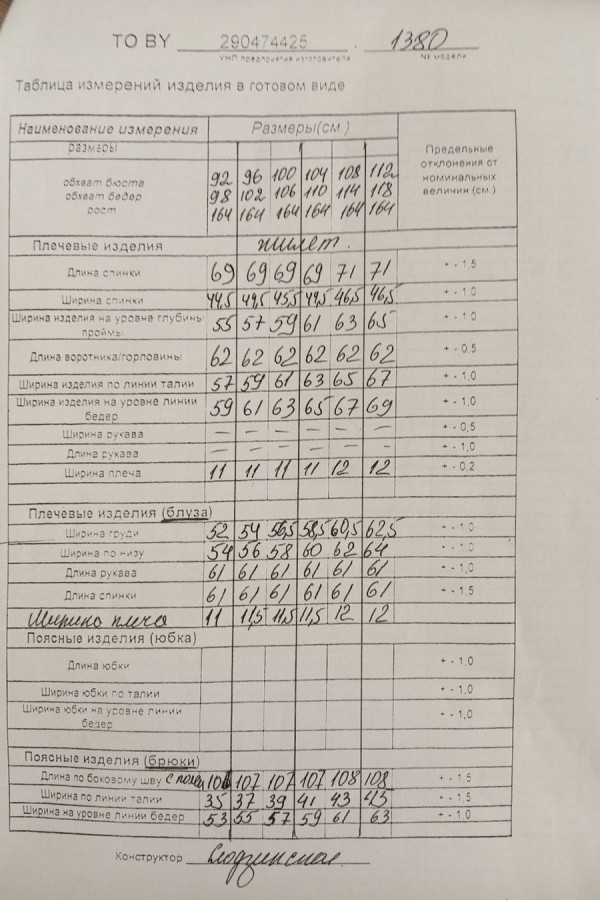 ТО BY 290474425 . 1380
УНП предприятия изготовителя № модели
Таблица измерений изделия в готовом виде
Наименование измерения Размеры(см.) Предельные отклонения от номинальных величин (см.)
размеры
обхват бюста 92 96 100 104 108 112
обхват бедер 98 102 106 110 114 118
рост 164 164 164 164 164 164
Плечевые изделия жилет.
Длина спинки 69 69 69 69 71 71 + - 1,5
Ширина спинки 46,5 + - 1,0
Ширина изделия на уровне глубины проймы 55 57 59 61 63 65 + - 1,0
Длина воротника/горловины 62 62 62 62 62 62 + - 0,5
Ширина изделия по линии талии 57 59 61 63 65 67 + - 1,0
Ширина изделия на уровне линии бедер 59 61 63 65 67 69 + - 1,0
Ширина рукава – – – – – – + - 0,5
Длина рукава – – – – – – + - 1,0
Ширина плеча 11 11 11 11 12 12 + - 0,2
Плечевые изделия (блуза)
Ширина груди 52 54 56,5 58,5 60,5 62,5 + - 1.0
Ширина по низу 54 56 58 60 62 64 + - 1.0
Длина рукава 61 61 61 61 61 61 + - 1,0
Длина спинки 61 61 61 61 61 61 + - 1.5
Ширина плеча 11 11,5 11,5 11,5 12 12
Поясные изделия (юбка)
Длина юбки + - 1,0
Ширина юбки по талии + - 1,0
Ширина юбки на уровне линии бедер + - 1,0
Поясные изделия (брюки)
Длина по боковому шву с 107 107 107 108 108 + - 1.5
Ширина по линии талии 35 37 39 41 43 45 + - 1,5
Ширина на уровне линии бедер 53 55 57 59 61 63 + - 1,0
Конструктор